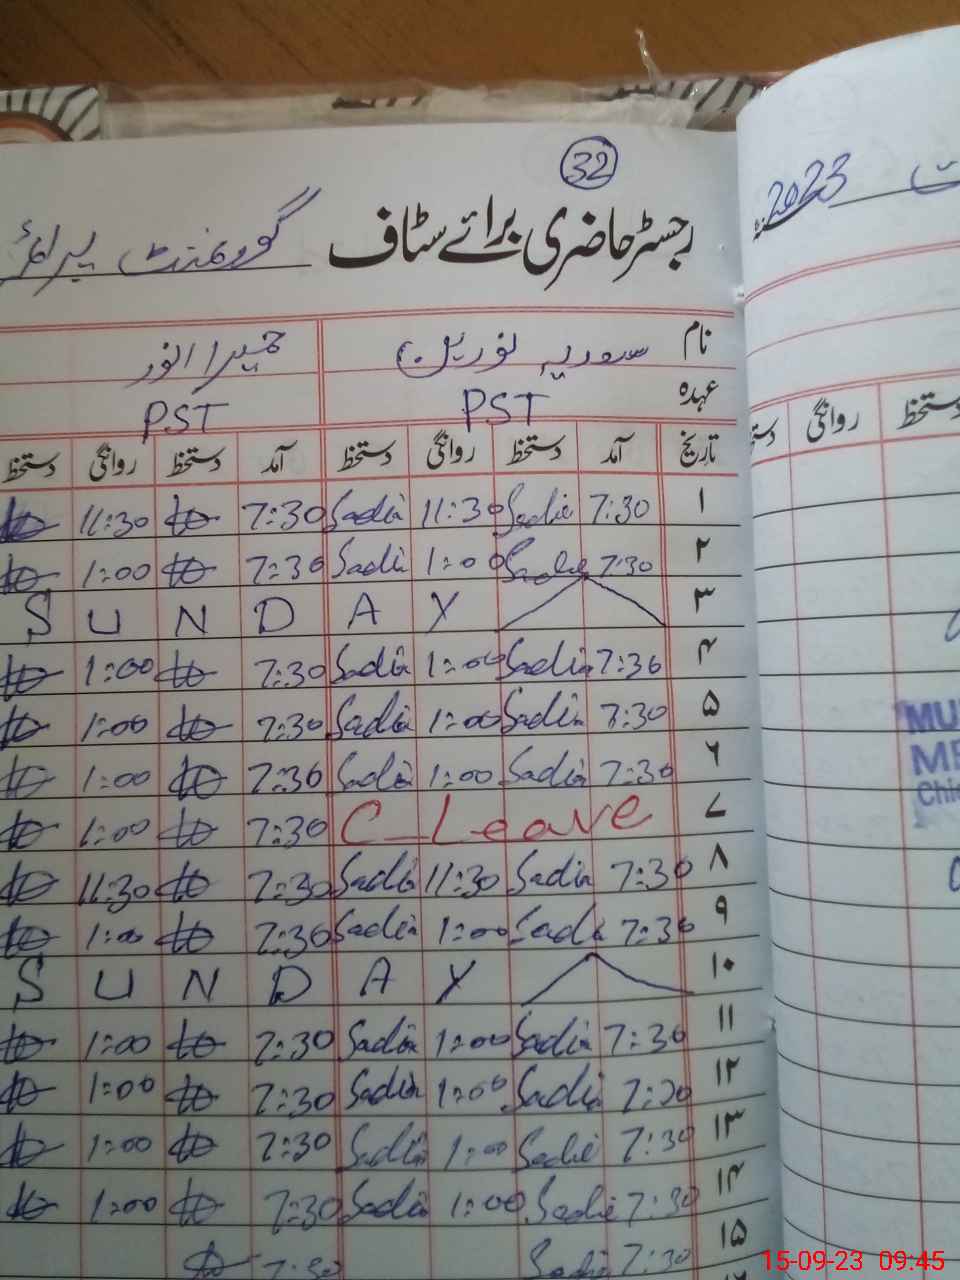 32
رجسٹر حاضری برائے سٹاف گورنمنٹ پرائمر
2023
نام سعدیہ نورین حمیرا انور
عہدہ PST PST
تاریخ آمد دستخط روانگی دستخط آمد دستخط روانگی دستخط
روانگی دستخط
۱ 7:30 Sadia 11:30 Sadia 7:30 11:30
۲ 7:30 Sadia 1:00 Sadia 7:30 1:00
۳ SUNDAY
۴ 7:30 Sadia 1:00 Sadia 7:30 1:00
۵ 7:30 Sadia 1:00 Sadia 7:30 1:00
۶ 7:30 Sadia 1:00 Sadia 7:30 1:00
۷ C-Leave 7:30 1:00
۸ 7:30 Sadia 11:30 Sadia 7:30 11:30
۹ 7:30 Sadia 1:00 Sadia 7:30 1:00
۱۰ SUNDAY
۱۱ 7:30 Sadia 1:00 Sadia 7:30 1:00
۱۲ 7:30 Sadia 1:00 Sadia 7:30 1:00
۱۳ 7:30 Sadia 1:00 Sadia 7:30 1:00
۱۴ 7:30 Sadia 1:00 Sadia 7:30 1:00
۱۵ 7:30 Sadia 7:30
MU
ME
Chi
15-09-23 09:45